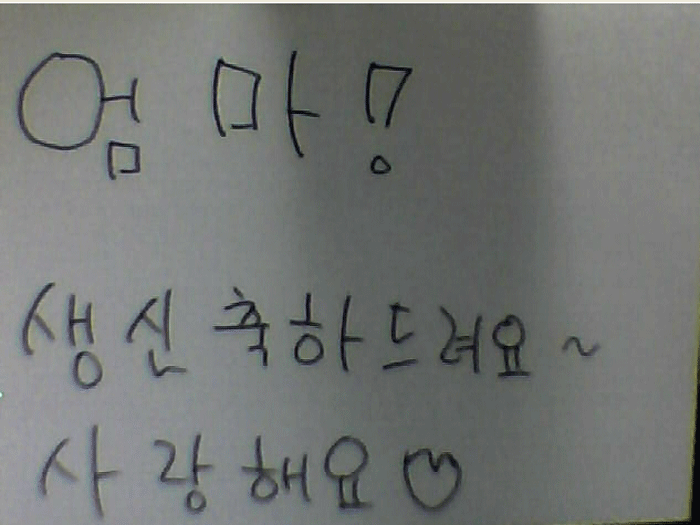 엄마!
생신축하드려요~
사랑해요♡